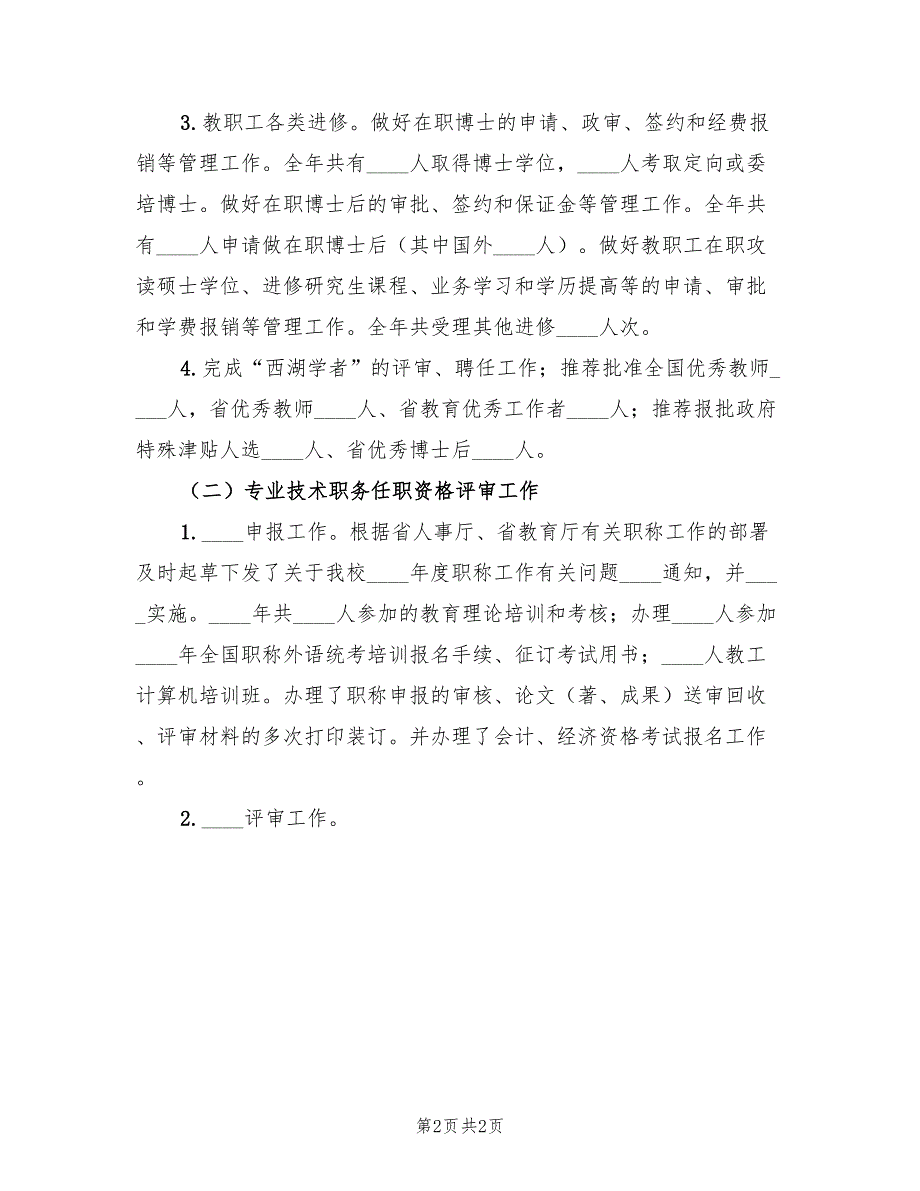 3. 教职工各类进修。做好在职博士的申请、政审、签约和经费报
销等管理工作。全年共有____人取得博士学位，____人考取定向或委
培博士。做好在职博士后的审批、签约和保证金等管理工作。全年共
有____人申请做在职博士后（其中国外____人）。做好教职工在职攻
读硕士学位、进修研究生课程、业务学习和学历提高等的申请、审批
和学费报销等管理工作。全年共受理其他进修____人次。
4. 完成“西湖学者”的评审、聘任工作；推荐批准全国优秀教师_
___人，省优秀教师____人、省教育优秀工作者____人；推荐报批政府
特殊津贴人选____人、省优秀博士后____人。
（二）专业技术职务任职资格评审工作
1. ____申报工作。根据省人事厅、省教育厅有关职称工作的部署
及时起草下发了关于我校____年度职称工作有关问题____通知，并___
_实施。____年共____人参加的教育理论培训和考核；办理____人参加
____年全国职称外语统考培训报名手续、征订考试用书；____人教工
计算机培训班。办理了职称申报的审核、论文（著、成果）送审回收
、评审材料的多次打印装订。并办理了会计、经济资格考试报名工作
。
2. ____评审工作。
第2页 共2页